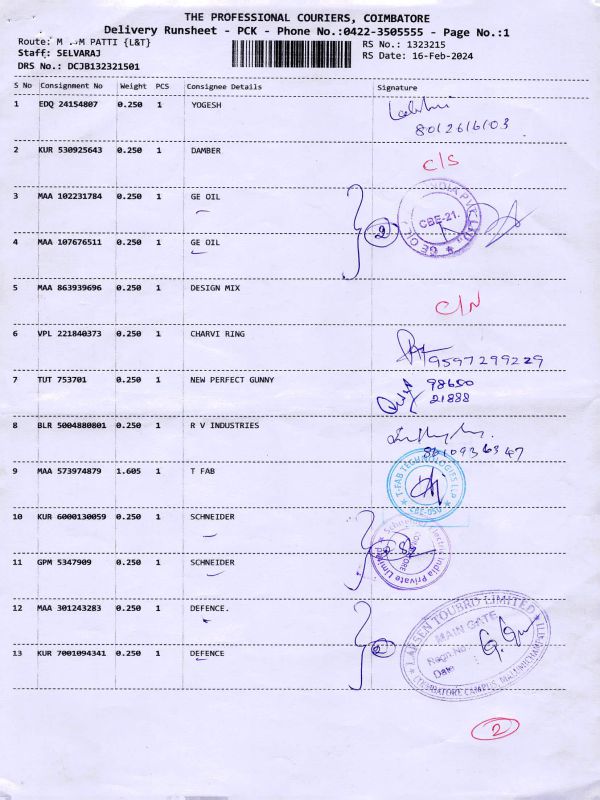 THE PROFESSIONAL COURIERS, COIMBATORE
Delivery Runsheet - PCK - Phone No.:0422-3505555 - Page No.:1
Route: M PATTI {L&T} RS No.: 1323215
Staff: SELVARAJ RS Date: 16-Feb-2024
DRS No.: DCJB132321501
S No Consignment No Weight PCS Consignee Details Signature
1 EDQ 24154807 0.250 1 YOGESH
8012616103
2 KUR 530925643 0.250 1 DAMBER C/S
3 MAA 102231784 0.250 1 GE OIL
GE OIL INDIA PVT LTD CBE-21.
2
4 MAA 107676511 0.250 1 GE OIL
5 MAA 863939696 0.250 1 DESIGN MIX C/N
6 VPL 221840373 0.250 1 CHARVI RING
9597299229
7 TUT 753701 0.250 1 NEW PERFECT GUNNY 98650
21888
8 BLR 5004880801 0.250 1 R V INDUSTRIES
9 MAA 573974879 1.605 1 T FAB
T-FAB TECHNOLOGIES LLP
CBE-050
10 KUR 6000130059 0.250 1 SCHNEIDER
Schneider Electric India Private Limited
COIMBATORE
11 GPM 5347909 0.250 1 SCHNEIDER
12 MAA 301243283 0.250 1 DEFENCE.
LARSEN TOUBRO LIMITED
MAIN GATE
Regn.No
Date :
COIMBATORE CAMPUS,
13 KUR 7001094341 0.250 1 DEFENCE
2
2